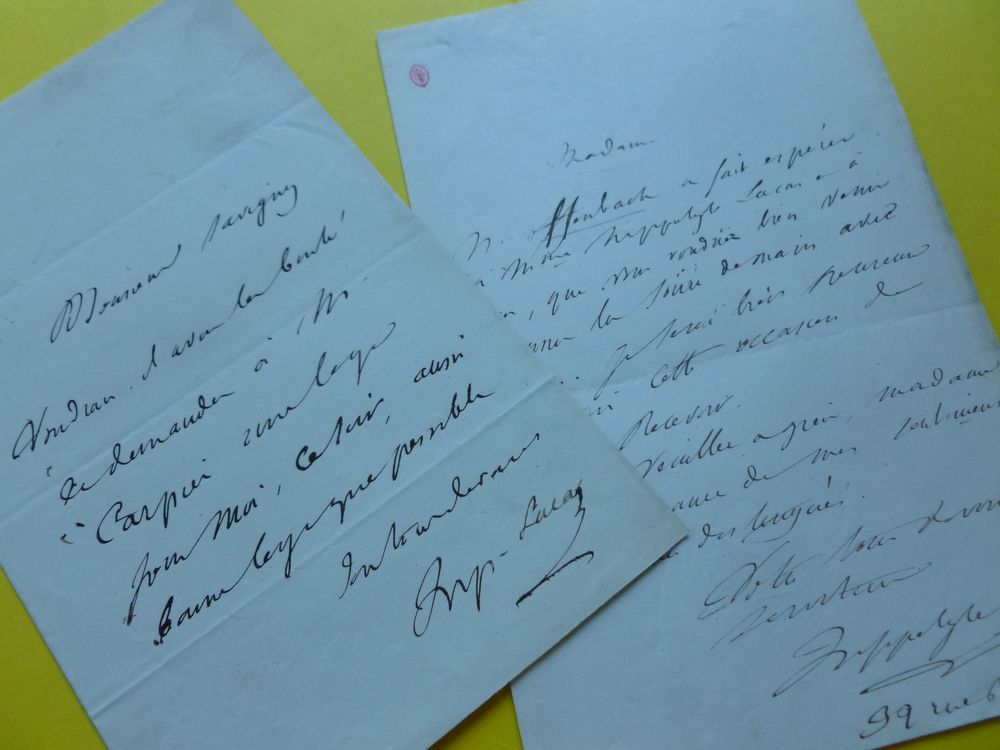 Monsieur Savigny
Voudrait-il avoir la bonté
de demander à M
Carpier une loge
pour moi, ce soir, aussi
bonne loge que possible
tout
Hip. Lucas
Madame
M. Offenbach a fait espérer
Mme Hippolyte Lucas et à
que vous voudriez bien venir
la soirée demain avec
Je serai très heureux
cette occasion de
recevoir.
Veuillez agréer, madame
de mes sentiments
des
Votre tout dévoué
serviteur
Hippolyte
99 rue